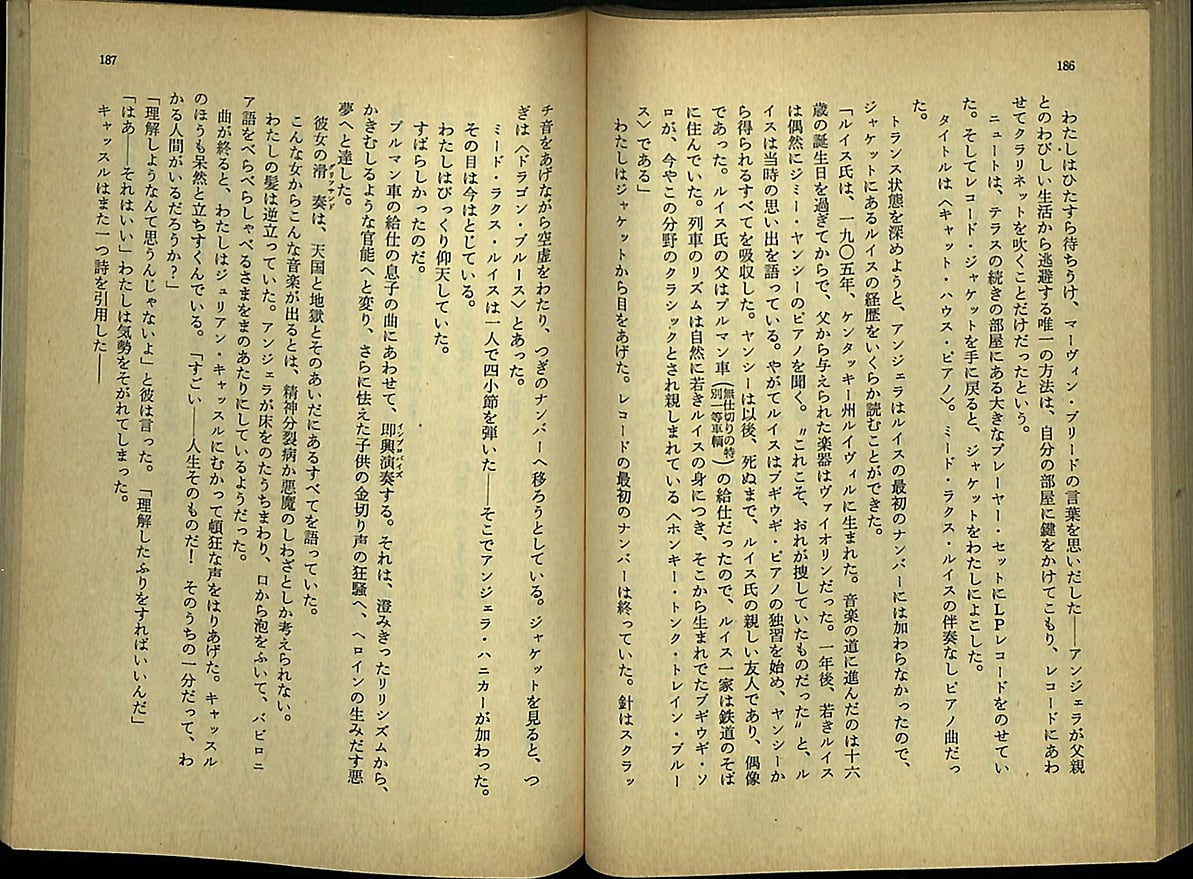 186
わたしはひたすら待ちうけ、マーヴィン・ブリードの言葉を思いだした――アンジェラが父親
とのわびしい生活から逃避する唯一の方法は、自分の部屋に鍵をかけてこもり、レコードにあわ
せてクラリネットを吹くことだけだったという。
ニュートは、テラスの続きの部屋にある大きなプレーヤー・セットにLPレコードをのせてい
た。そしてレコード・ジャケットを手に戻ると、ジャケットをわたしによこした。
タイトルは〈キャット・ハウス・ピアノ〉。ミード・ラクス・ルイスの伴奏なしピアノ曲だっ
た。
トランス状態を深めようと、アンジェラはルイスの最初のナンバーには加わらなかったので、
ジャケットにあるルイスの経歴をいくらか読むことができた。
「ルイス氏は、一九〇五年、ケンタッキー州ルイヴィルに生まれた。音楽の道に進んだのは十六
歳の誕生日を過ぎてからで、父から与えられた楽器はヴァイオリンだった。一年後、若きルイス
は偶然にジミー・ヤンシーのピアノを聞く。〝これこそ、おれが捜していたものだった〟と、ル
イスは当時の思い出を語っている。やがてルイスはブギウギ・ピアノの独習を始め、ヤンシーか
ら得られるすべてを吸収した。ヤンシーは以後、死ぬまで、ルイス氏の親しい友人であり、偶像
であった。ルイス氏の父はプルマン車（無仕切りの特別一等車輛）の給仕だったので、ルイス一家は鉄道のそば
に住んでいた。列車のリズムは自然に若きルイスの身につき、そこから生まれでたブギウギ・ソ
ロが、今やこの分野のクラシックとされ親しまれている〈ホンキー・トンク・トレイン・ブルー
ス〉である」
わたしはジャケットから目をあげた。レコードの最初のナンバーは終っていた。針はスクラッ
187
チ音をあげながら空虚をわたり、つぎのナンバーへ移ろうとしている。ジャケットを見ると、つ
ぎは〈ドラゴン・ブルース〉とあった。
ミード・ラクス・ルイスは一人で四小節を弾いた――そこでアンジェラ・ハニカーが加わった。
その目は今はとじている。
わたしはびっくり仰天していた。
すばらしかったのだ。
プルマン車の給仕の息子の曲にあわせて、即興演奏する。それは、澄みきったリリシズムから、
インプロバイズ
かきむしるような官能へと変り、さらに怯えた子供の金切り声の狂騒へ、ヘロインの生みだす悪
夢へと達した。
彼女の滑奏は、天国と地獄とそのあいだにあるすべてを語っていた。
グリッサンド
こんな女からこんな音楽が出るとは、精神分裂病か悪魔のしわざとしか考えられない。
わたしの髪は逆立っていた。アンジェラが床をのたうちまわり、口から泡をふいて、バビロニ
ア語をべらべらしゃべるさまをまのあたりにしているようだった。
曲が終ると、わたしはジュリアン・キャッスルにむかって頓狂な声をはりあげた。キャッスル
のほうも呆然と立ちすくんでいる。「すごい――人生そのものだ！　そのうちの一分だって、わ
かる人間がいるだろうか？」
「理解しようなんて思うんじゃないよ」と彼は言った。「理解したふりをすればいいんだ」
「はあ――それはいい」わたしは気勢をそがれてしまった。
キャッスルはまた一つ詩を引用した――